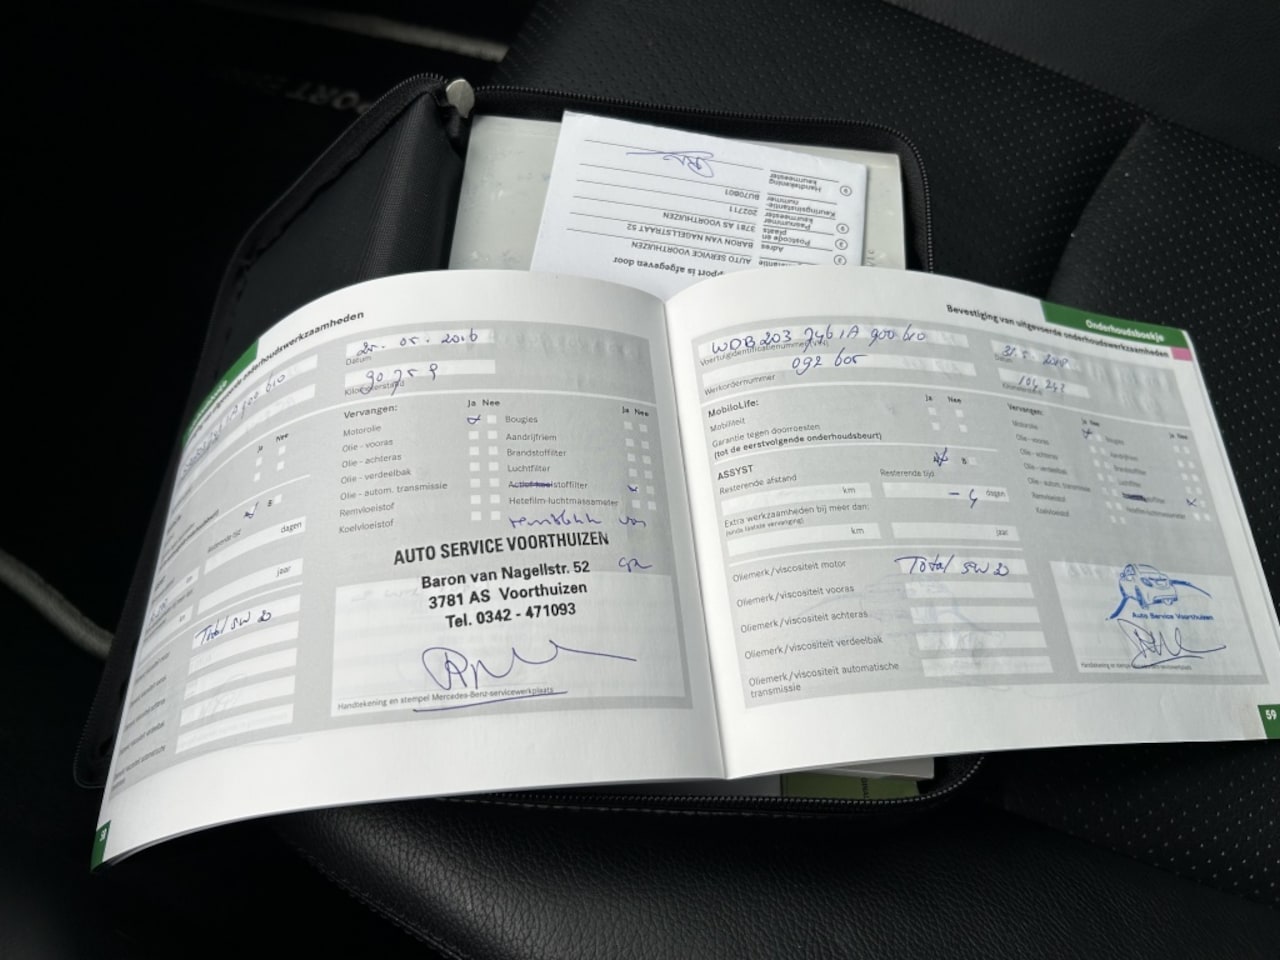 PORT
Handtekening
keurmeester
Keuringsinstantie-
nummer
BU70B01
Pasnummer
keurmeester
202711
Postcode en
plaats
3781 AS VOORTHUIZEN
Adres
BARON VAN NAGELLSTRAAT 52
AUTO SERVICE VOORTHUIZEN
is afgegeven door
onderhoudswerkzaamheden
25. 05. 2016
Datum
90759
Ja Nee
dagen
jaar
Total 5W30
Vervangen:
Ja Nee
Motorolie
Olie - vooras
Olie - achteras
Olie - verdeelbak
Olie - autom. transmissie
Remvloeistof
Koelvloeistof
Ja Nee
Bougies
Aandrijfriem
Brandstoffilter
Luchtfilter
stoffilter
Hetefilm-luchtmassameter
AUTO SERVICE VOORTHUIZEN
Baron van Nagellstr. 52
3781 AS Voorthuizen
Tel. 0342 - 471093
Handtekening en stempel Mercedes-Benz-servicewerkplaats
Onderhoudsboekje
Bevestiging van uitgevoerde onderhoudswerkzaamheden
WDB 203 7461A 900 610
Voertuigidentificatienummer (VIN)
092 605
Werkordernummer
Datum
104 242
MobiloLife:
Mobiliteit
Garantie tegen doorroesten
(tot de eerstvolgende onderhoudsbeurt)
Ja Nee
ASSYST
B
Resterende afstand
km
Resterende tijd
- 4 dagen
Extra werkzaamheden bij meer dan:
(sinds laatste vervanging)
km
jaar
Oliemerk/viscositeit motor
Total 5W30
Oliemerk/viscositeit vooras
Oliemerk/viscositeit achteras
Oliemerk/viscositeit verdeelbak
Oliemerk/viscositeit automatische
transmissie
Vervangen:
Ja Nee
Motorolie
Olie - vooras
Olie - achteras
Olie - verdeelbak
Olie - autom. transmissie
Remvloeistof
Koelvloeistof
Ja Nee
Bougies
Aandrijfriem
Brandstoffilter
Luchtfilter
Hetefilm-luchtmassameter
Auto Service Voorthuizen
59